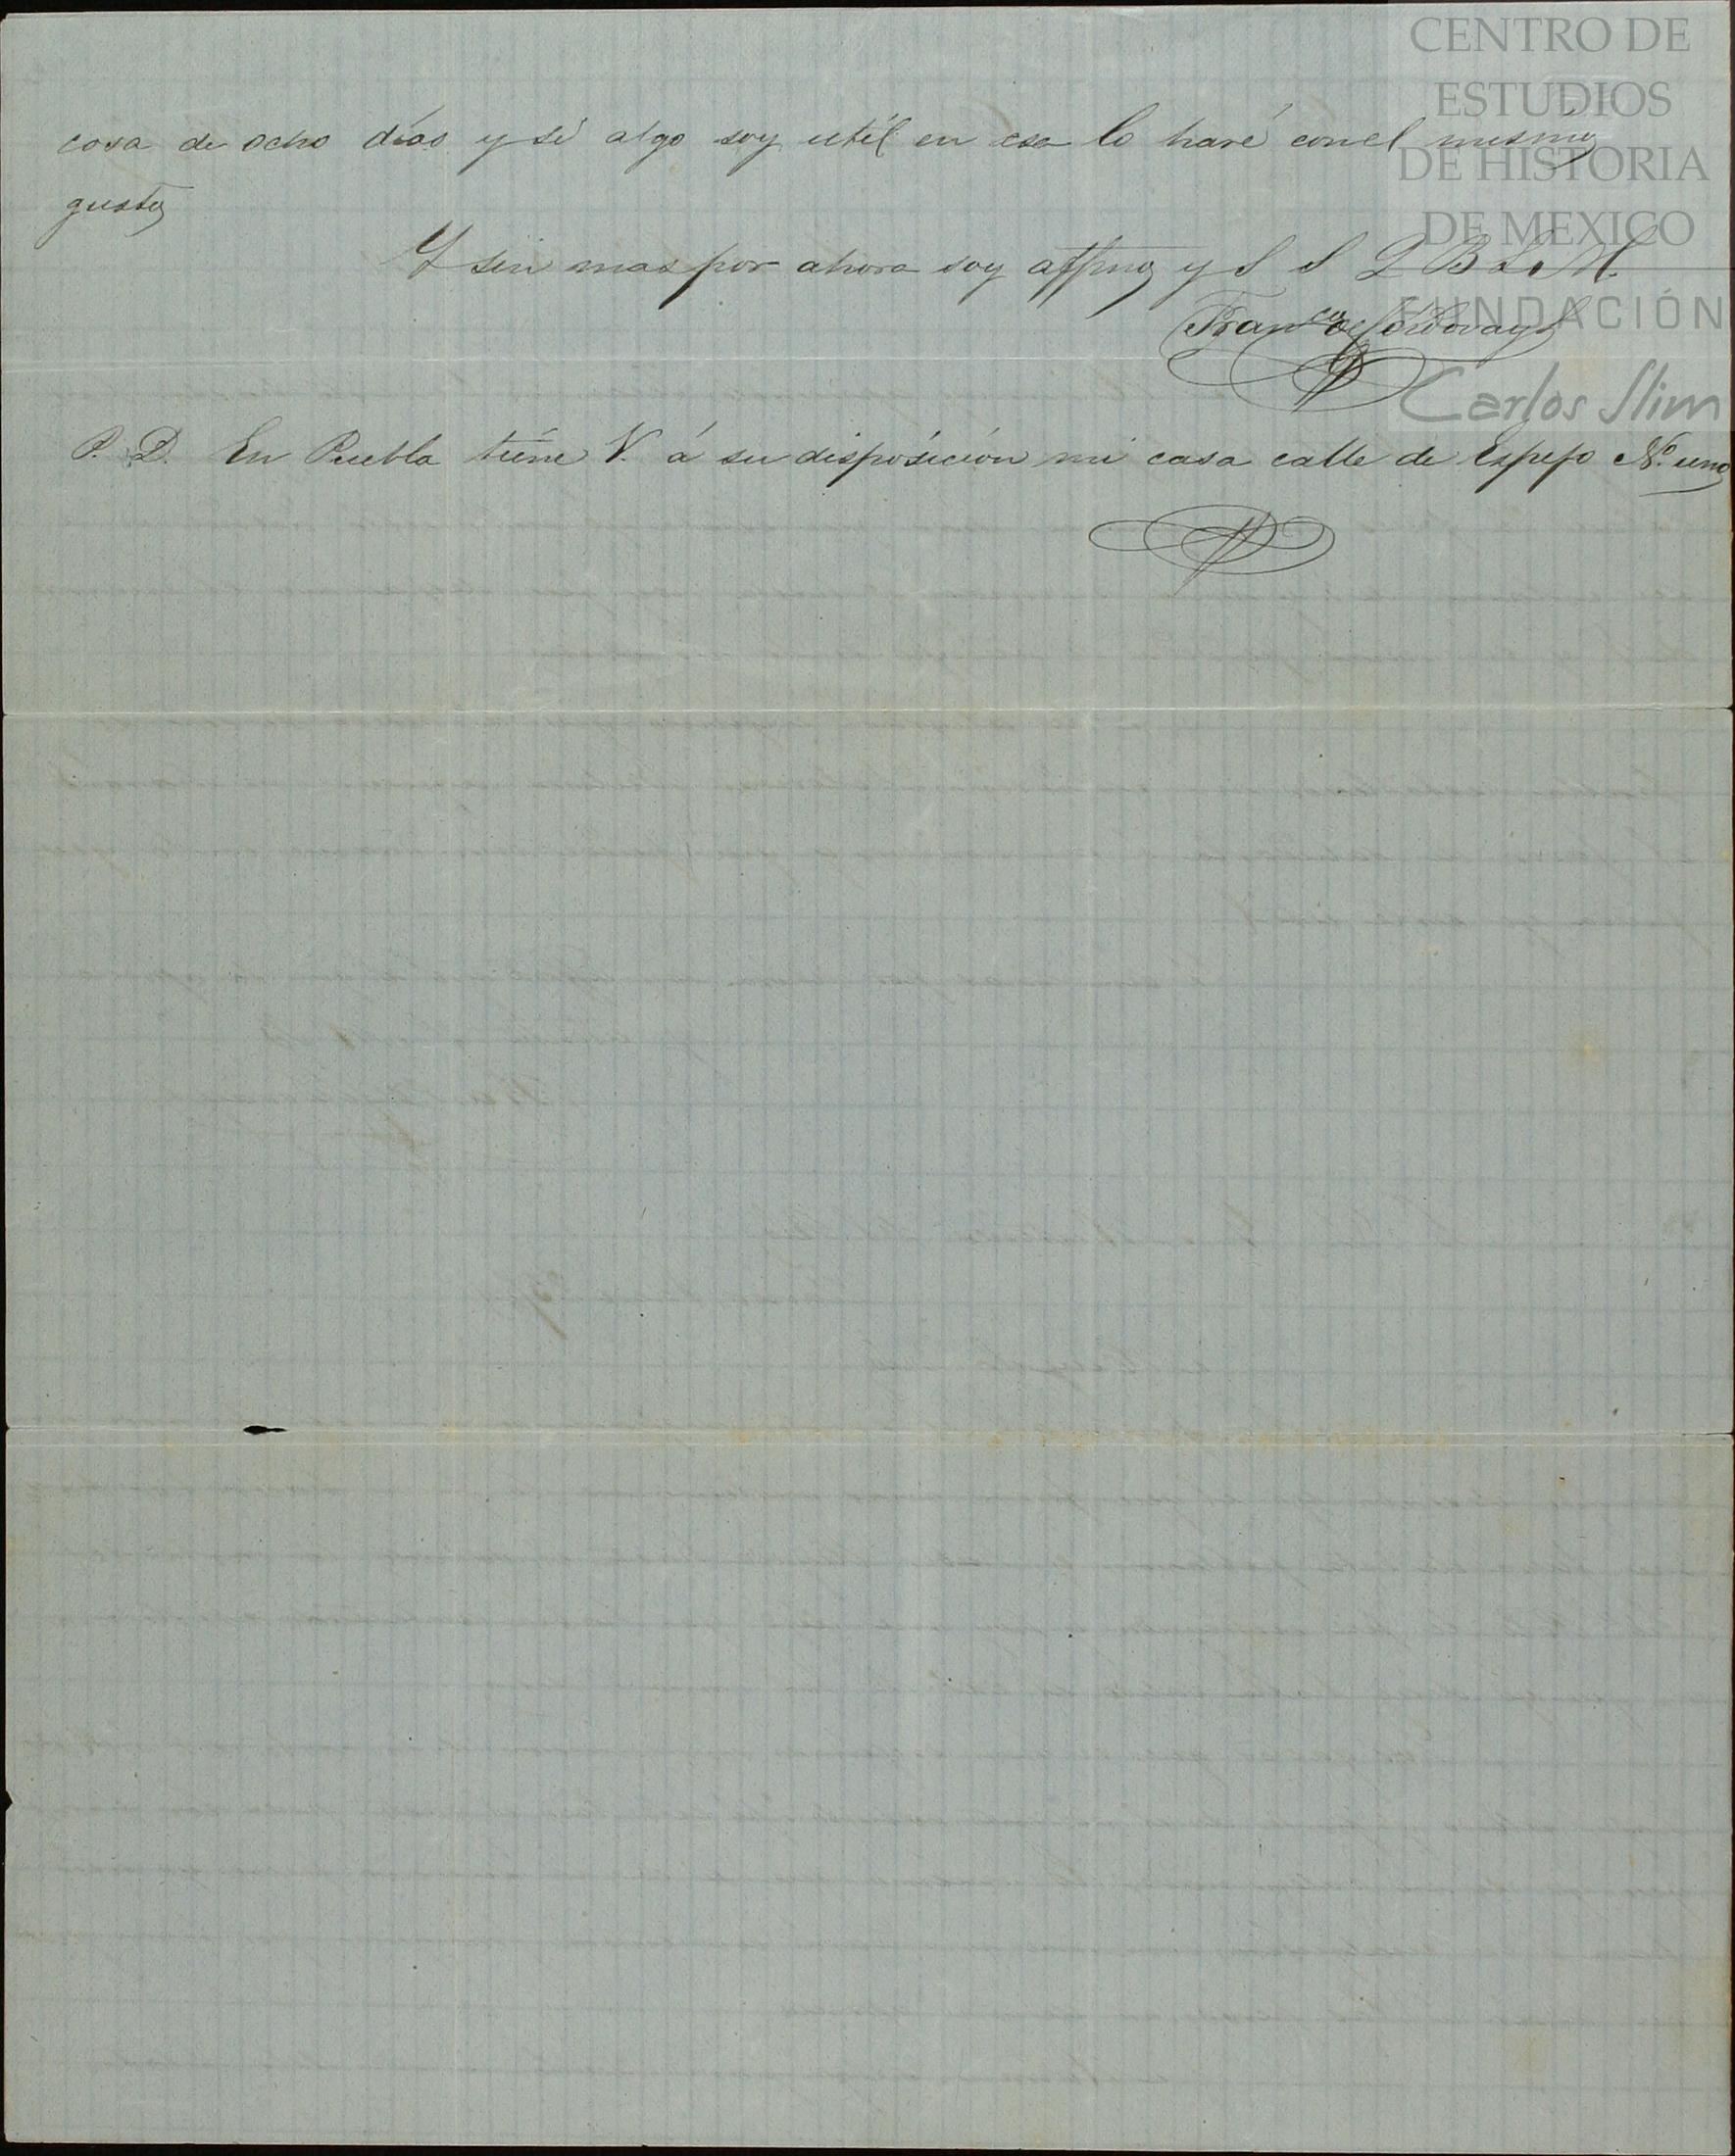 CENTRO DE
ESTUDIOS
DE HISTORIA
DE MEXICO
FUNDACIÓN
Carlos Slim
cosa de ocho días y si algo soy utíl en esa lo haré con el mismo
gusto
Y sin mas por ahora soy affmo y S S Q B L. M.
Franco de Cordova
P. D. En Puebla tiene V. á su disposición mi casa calle de Espejo No. uno